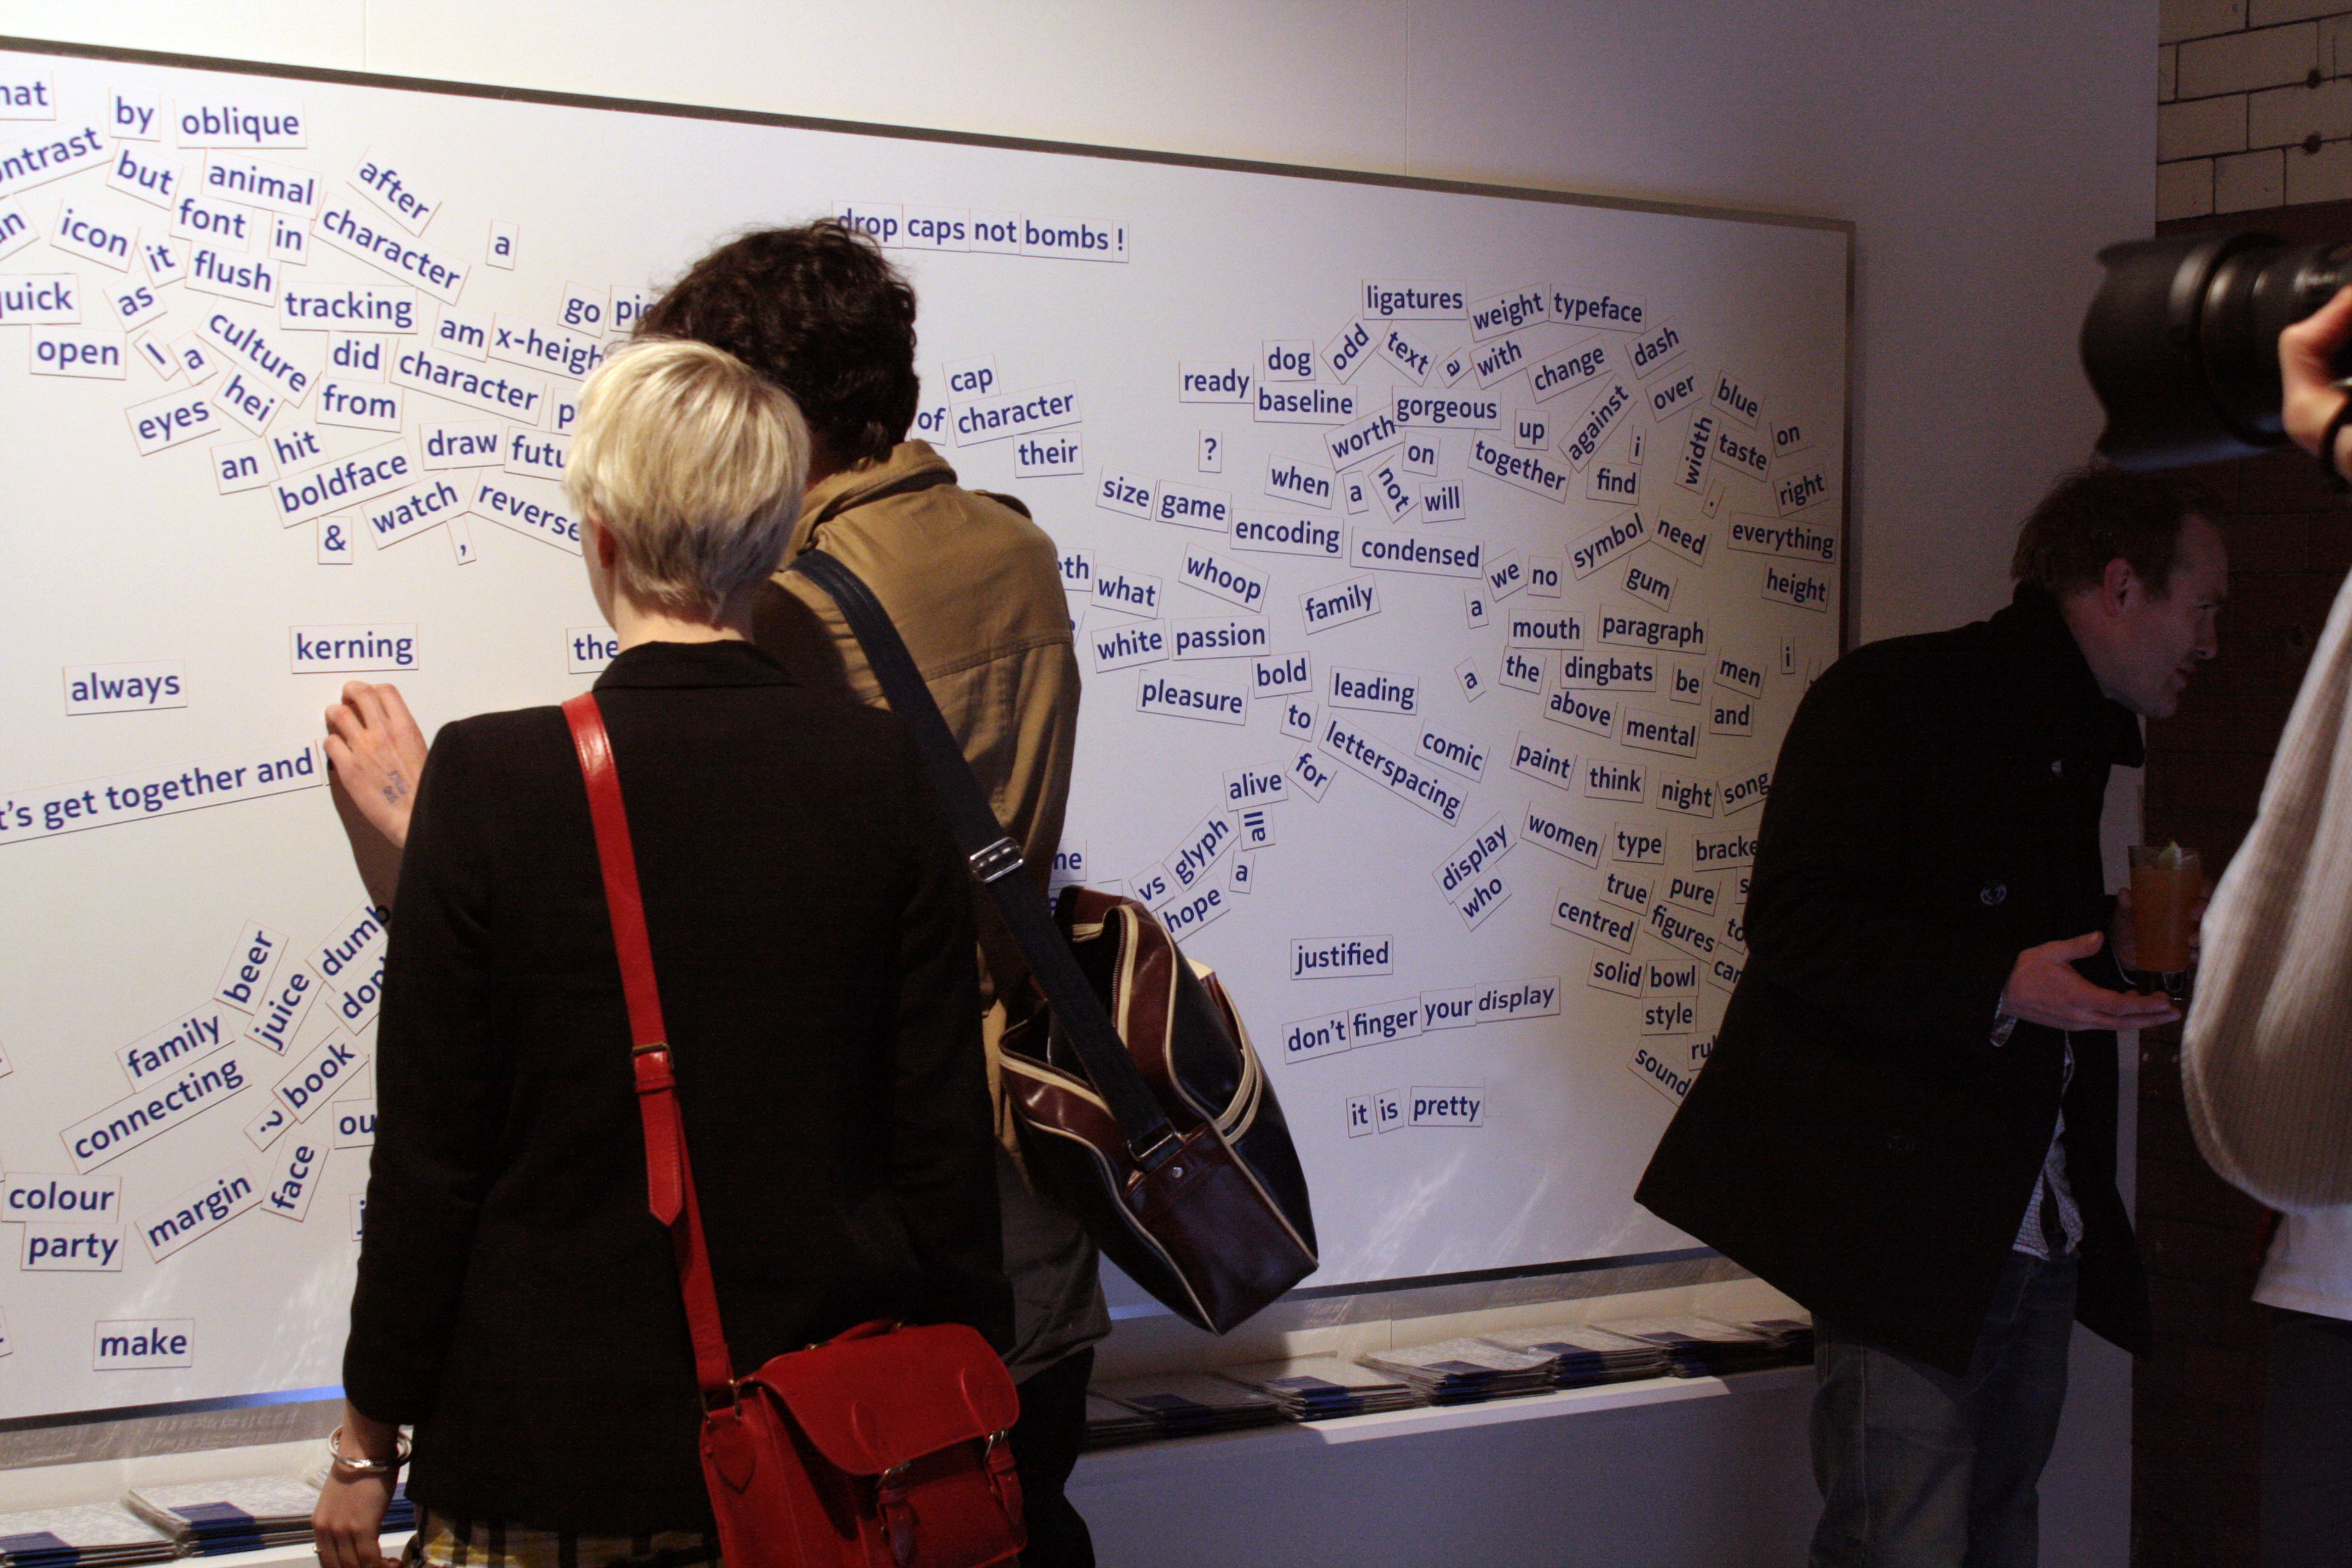 by oblique
but animal after
icon it font in character a
as flush
open I a culture tracking am
go
did character
eyes hei from
an hit draw
boldface
& watch , reverse
drop caps not bombs !
kerning
always
get together and
beer
juice dumb
family
connecting
? book
face
colour
margin
party
make
cap
of character
their
ligatures weight typeface
dog odd text a with change dash
ready baseline gorgeous up against over blue
? worth on together i width taste on
when a not will find . right
size game encoding condensed symbol need everything
what whoop family a we no gum height
white passion mouth paragraph
bold leading a the dingbats be men i
pleasure to above mental and
letterspacing comic paint think night song
alive for
glyph all display women type
vs a who true pure
hope centred figures
justified solid bowl
don't finger your display style
sound
it is pretty